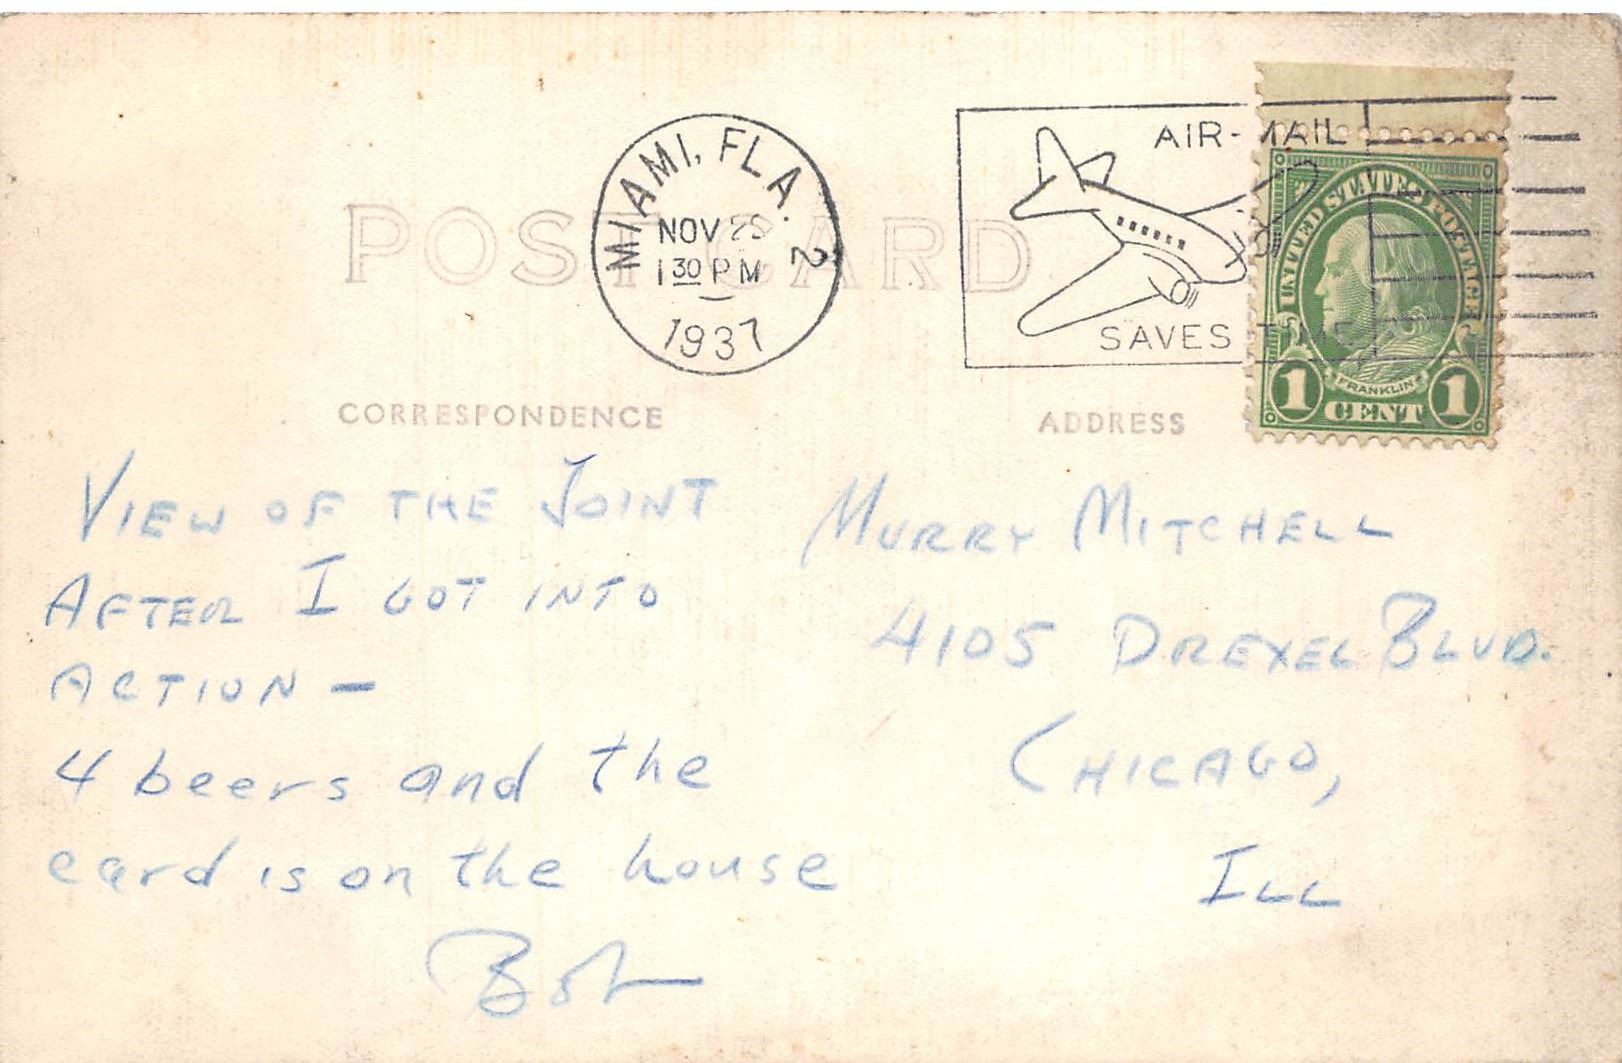 POST CARD
MIAMI, FLA. 2
NOV
1 30 PM
1937
AIR-MAIL
SAVES TIME
UNITED STATES POSTAGE
FRANKLIN
1 CENT 1
CORRESPONDENCE
ADDRESS
VIEW OF THE JOINT
AFTER I GOT INTO
ACTION —
4 beers and the
card is on the house
Bob
MURRY MITCHELL
4105 DREXEL BLVD.
CHICAGO,
ILL